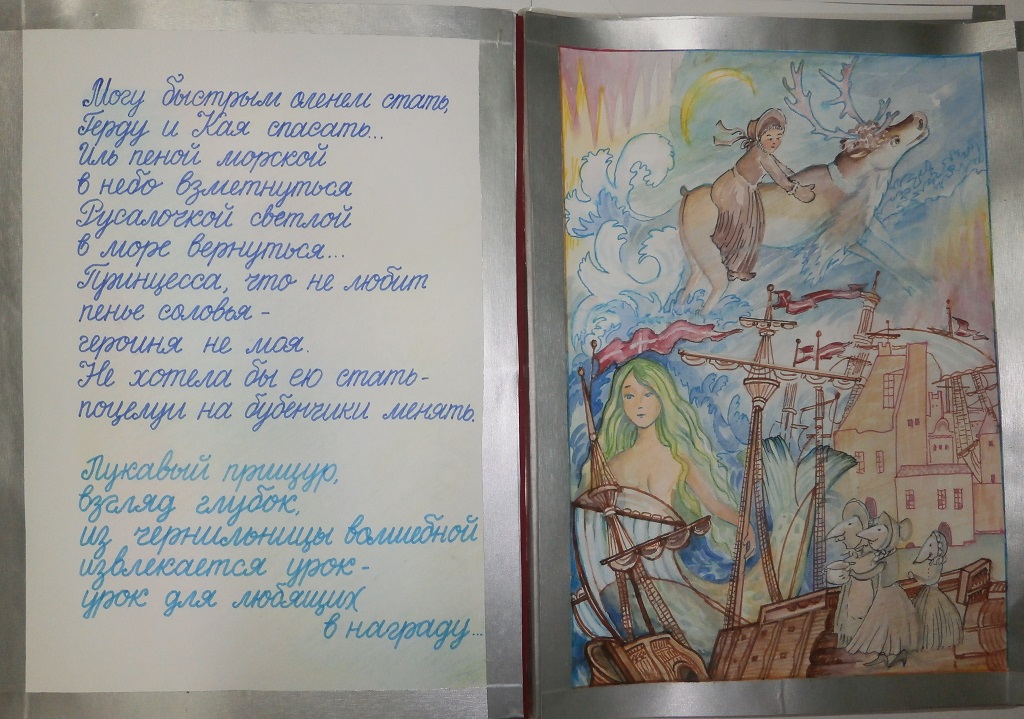 Могу быстрым оленем стать,
Герду и Кая спасать...
Иль пеной морской
в небо взметнуться
Русалочкой светлой
в море вернуться...
Принцесса, что не любит
пенье соловья -
героиня не моя.
Не хотела бы ею стать -
поцелуи на бубенчики менять.
Лукавый прищур,
взгляд глубок,
из чернильницы волшебной
извлекается урок -
урок для любящих
в награду...